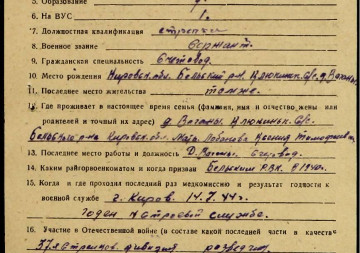 5. Образование
6. На ВУС 1.
7. Должностная квалификация стрелки
8. Военное звание сержант.
9. Гражданская специальность Счетовод.
10. Место рождения Кировск. обл. Бельский р-н. с/с. д. Вагоны.
11. Последнее место жительства тоже.
12. Где проживает в настоящее время семья (фамилия, имя и отчество жены или
родителей и точный их адрес) д. Вагоны, с/с.
р-на Кировск. обл. Мать Лобанова
13. Последнее место работы и должность Д. Вагоны. Счетовод.
14. Каким райгорвоенкоматом и когда призван РВК. 1940 г.
15. Когда и где проходил последний раз медкомиссию и результат годности к
военной службе г. Киров. 14.7.44 г.
годен к строевой службе.
16. Участие в Отечественной войне (в составе какой последней части и в качестве
37я стрелков. дивизия разведчик.